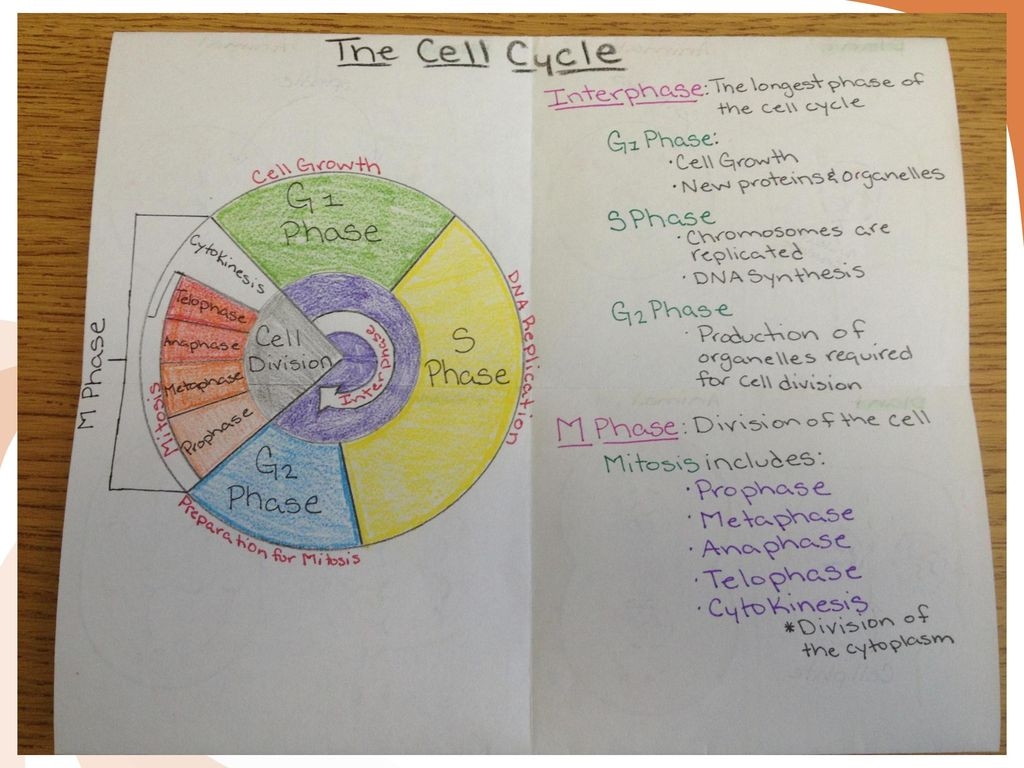 The Cell Cycle
Cell Growth
G1
Phase
Cytokinesis
Telophase
Anaphase
Metaphase
Prophase
Mitosis
M Phase
Cell
Division
Interphase
S
Phase
DNA Replication
G2
Phase
Preparation for Mitosis
Interphase: The longest phase of
the cell cycle
G1 Phase:
· Cell Growth
· New proteins & organelles
S Phase
· Chromosomes are
replicated
· DNA Synthesis
G2 Phase
· Production of
organelles required
for cell division
M Phase: Division of the cell
Mitosis includes:
· Prophase
· Metaphase
· Anaphase
· Telophase
· Cytokinesis
* Division of
the cytoplasm